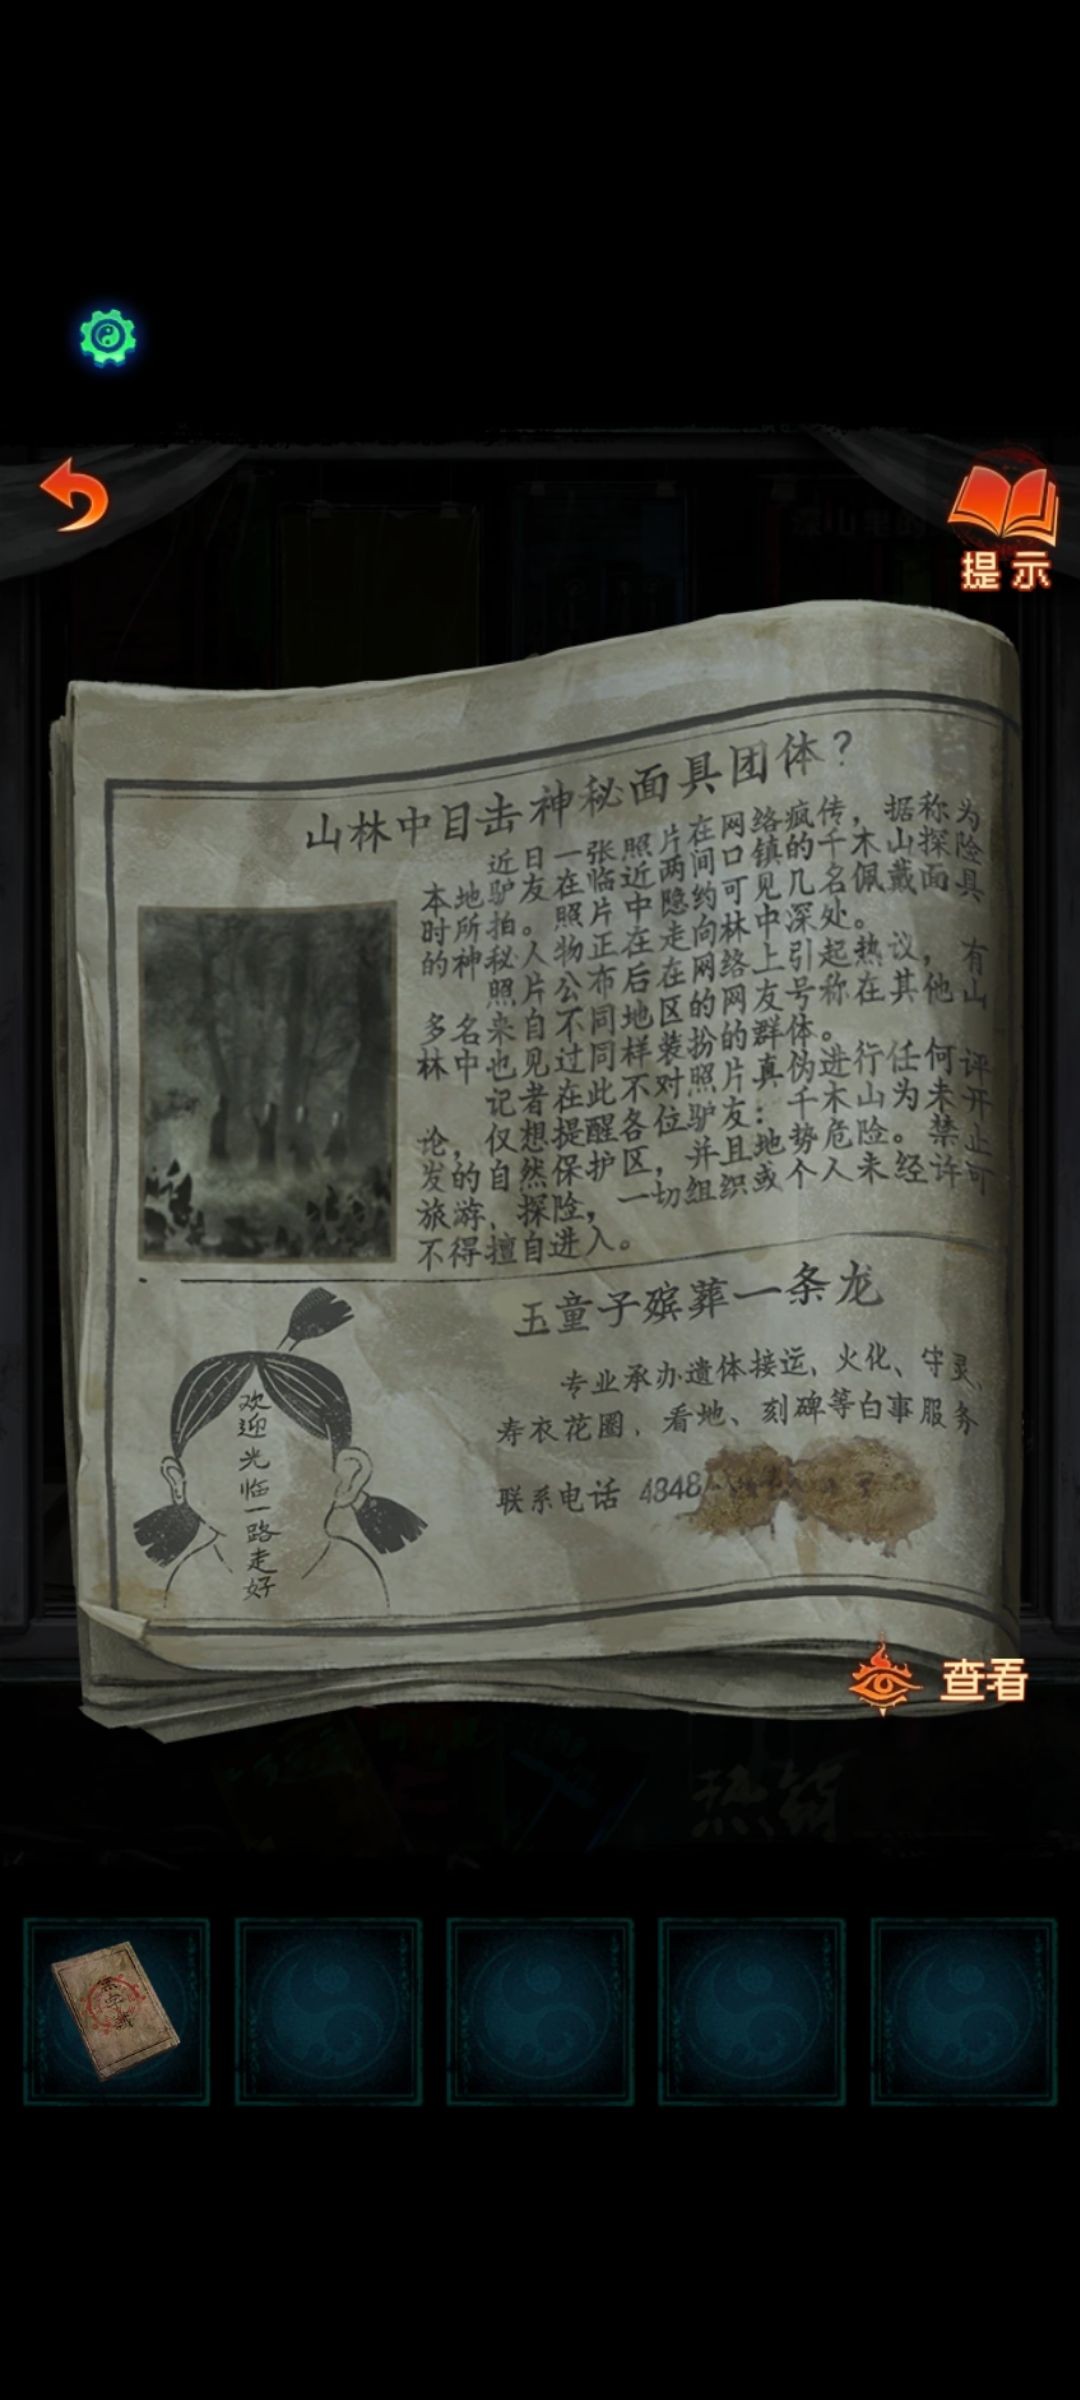 提示
山林中目击神秘面具团体?
近日一张照片在网络疯传,据称为
本地驴友在临近两间口镇的千木山探险
时所拍。照片中隐约可见几名佩戴面具
的神秘人物正在走向林中深处。
照片公布后在网络上引起热议,有
多名来自不同地区的网友号称在其他山
林中也见过同样装扮的群体。
记者在此不对照片真伪进行任何评
论,仅想提醒各位驴友:千木山为未开
发的自然保护区,并且地势危险。禁止
旅游、探险,一切组织或个人未经许可
不得擅自进入。
玉童子殡葬一条龙
专业承办遗体接运、火化、守灵、
寿衣花圈、看地、刻碑等白事服务
联系电话 4848
欢迎光临一路走好
查看
热销